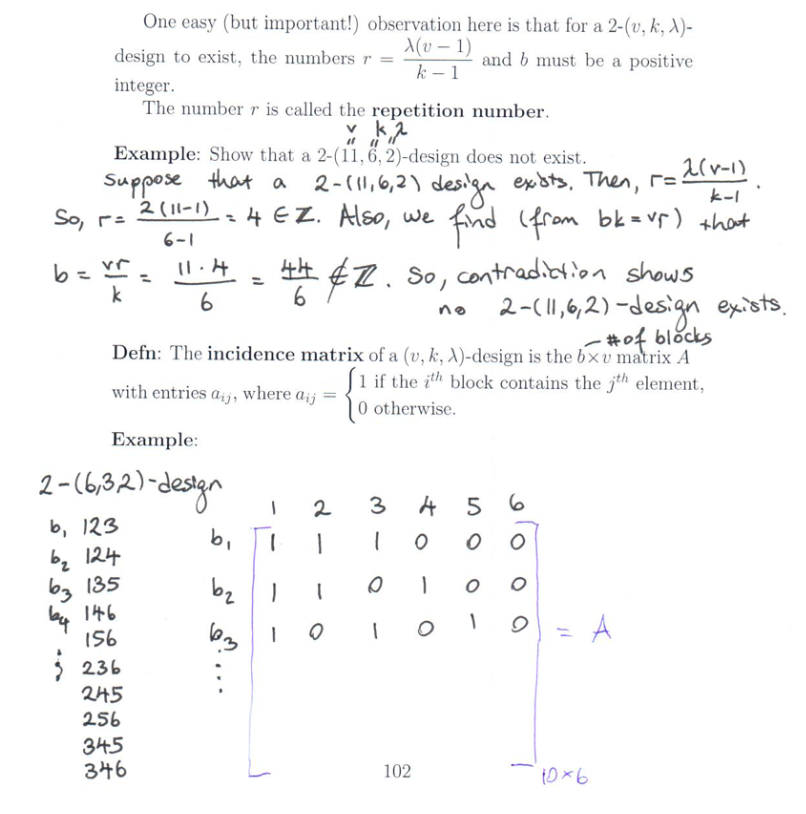 One easy (but important!) observation here is that for a 2-(v, k, λ)-
design to exist, the numbers r = λ(v − 1)/(k − 1) and b must be a positive
integer.
The number r is called the repetition number.
v k, λ
" " "
Example: Show that a 2-(11, 6, 2)-design does not exist.
Suppose that a 2-(11,6,2) design exists. Then, r = λ(v-1)/(k-1).
So, r = 2(11-1)/(6-1) = 4 ∈ ℤ. Also, we find (from bk = vr) that
b = vr/k = 11·4/6 = 44/6 ∉ ℤ. So, contradiction shows
no 2-(11,6,2)-design exists.
# of blocks
Defn: The incidence matrix of a (v, k, λ)-design is the b×v matrix A
with entries aᵢⱼ, where aᵢⱼ = { 1 if the iᵗʰ block contains the jᵗʰ element,
0 otherwise.
Example:
2-(6,3,2)-design
b₁ 123
b₂ 124
b₃ 135
b₄ 146
⋮ 156
236
245
256
345
346
1 2 3 4 5 6
b₁ 1 1 1 0 0 0
b₂ 1 1 0 1 0 0
b₃ 1 0 1 0 1 0 = A
⋮
10×6
102